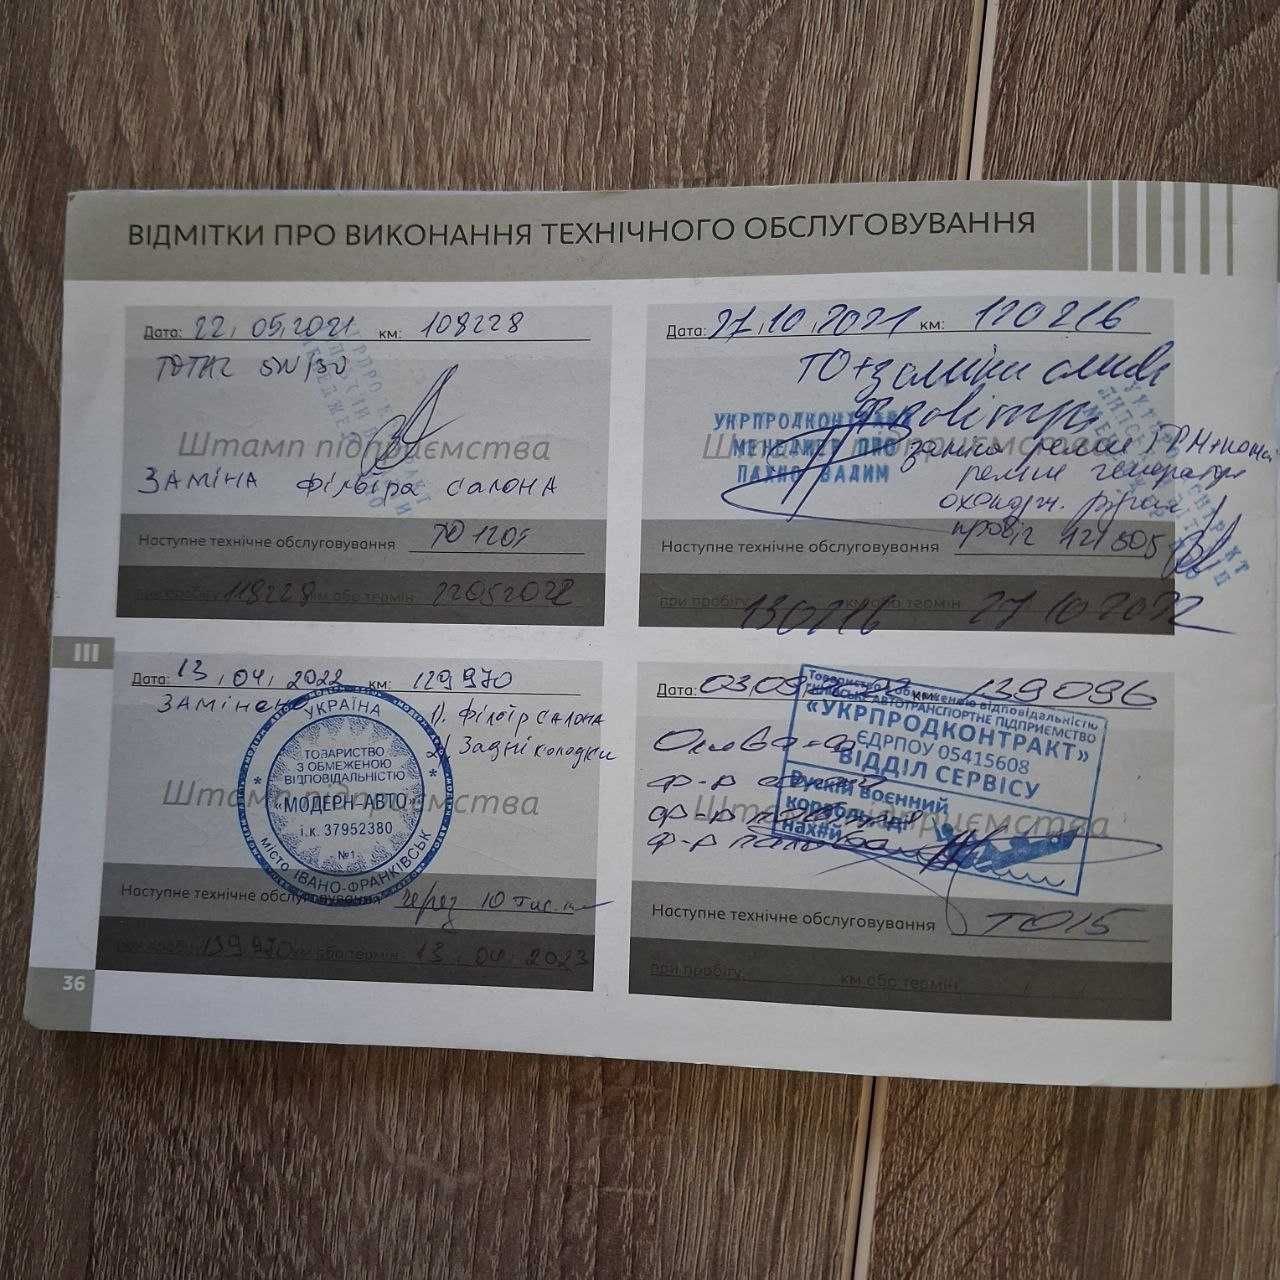 ВІДМІТКИ ПРО ВИКОНАННЯ ТЕХНІЧНОГО ОБСЛУГОВУВАННЯ
Дата: 22,05,2021 км: 108228
TOTAL 5W/30
Штамп підприємства
ЗАМІНА фільтра салона
Наступне технічне обслуговування ТО 120т
при пробігу 118228 км або термін 22052022
Дата: 27,10,2021 км: 120216
ТО+заміна
УКРПРОДКОНТРАКТ
МЕНЕДЖЕР ПРО
ПАХНО ВАДИМ
Штамп підприємства
заміна ремня ГРМ+помпи
ремня генератора
охолодж. рідини
пробіг 121505
Наступне технічне обслуговування
при пробігу 130216 км або термін 27 10 2022
III
Дата: 13,04,2022 км: 129970
ЗАМІНЕНО
1). Фільтр САЛОНА
2). Задні колодки
УКРАЇНА
ТОВАРИСТВО
З ОБМЕЖЕНОЮ
ВІДПОВІДАЛЬНІСТЮ
«МОДЕРН-АВТО»
і.к. 37952380
№1
МІСТО ІВАНО-ФРАНКІВСЬК
Штамп підприємства
Наступне технічне обслуговування через 10 тис.
при пробігу 139970 км або термін 13,04,2023
Дата: 03,09,22 км: 139096
Товариство з обмеженою відповідальністю
АВТОТРАНСПОРТНЕ ПІДПРИЄМСТВО
«УКРПРОДКОНТРАКТ»
ЄДРПОУ 05415608
ВІДДІЛ СЕРВІСУ
Рускій воєнний
корабль, іді
нах#й
Олива
ф-р
ф-р
ф-р палива
Штамп підприємства
Наступне технічне обслуговування ТО15
при пробігу км або термін
36